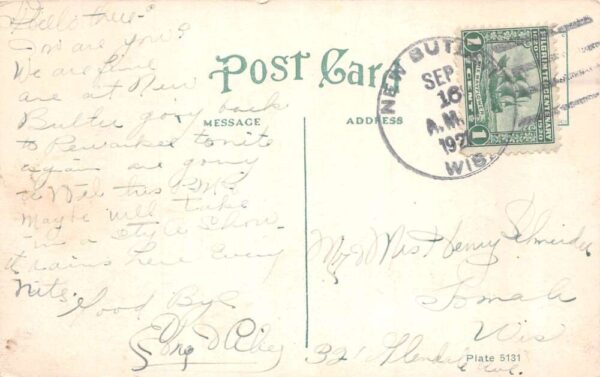 Hello
How are you?
We are fine
are at New
Butler going back
to Pewaukee tonite
again are going
to this P.M.
Maybe will take
in a style show
it rains here every
nite.
Good Bye
Post Card
MESSAGE
ADDRESS
NEW BUTLER
SEP
16
A.M.
192
WIS.
PILGRIM TERCENTENARY
1620 1920
1 CENT 1
Mr & Mrs Henry Schneider
Tomah
Wis
321 Glendale Ave.
Plate 5131